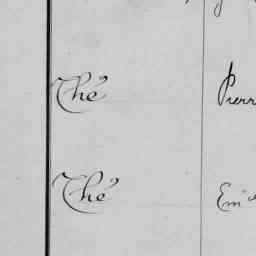 Thé Pierr
Thé Em